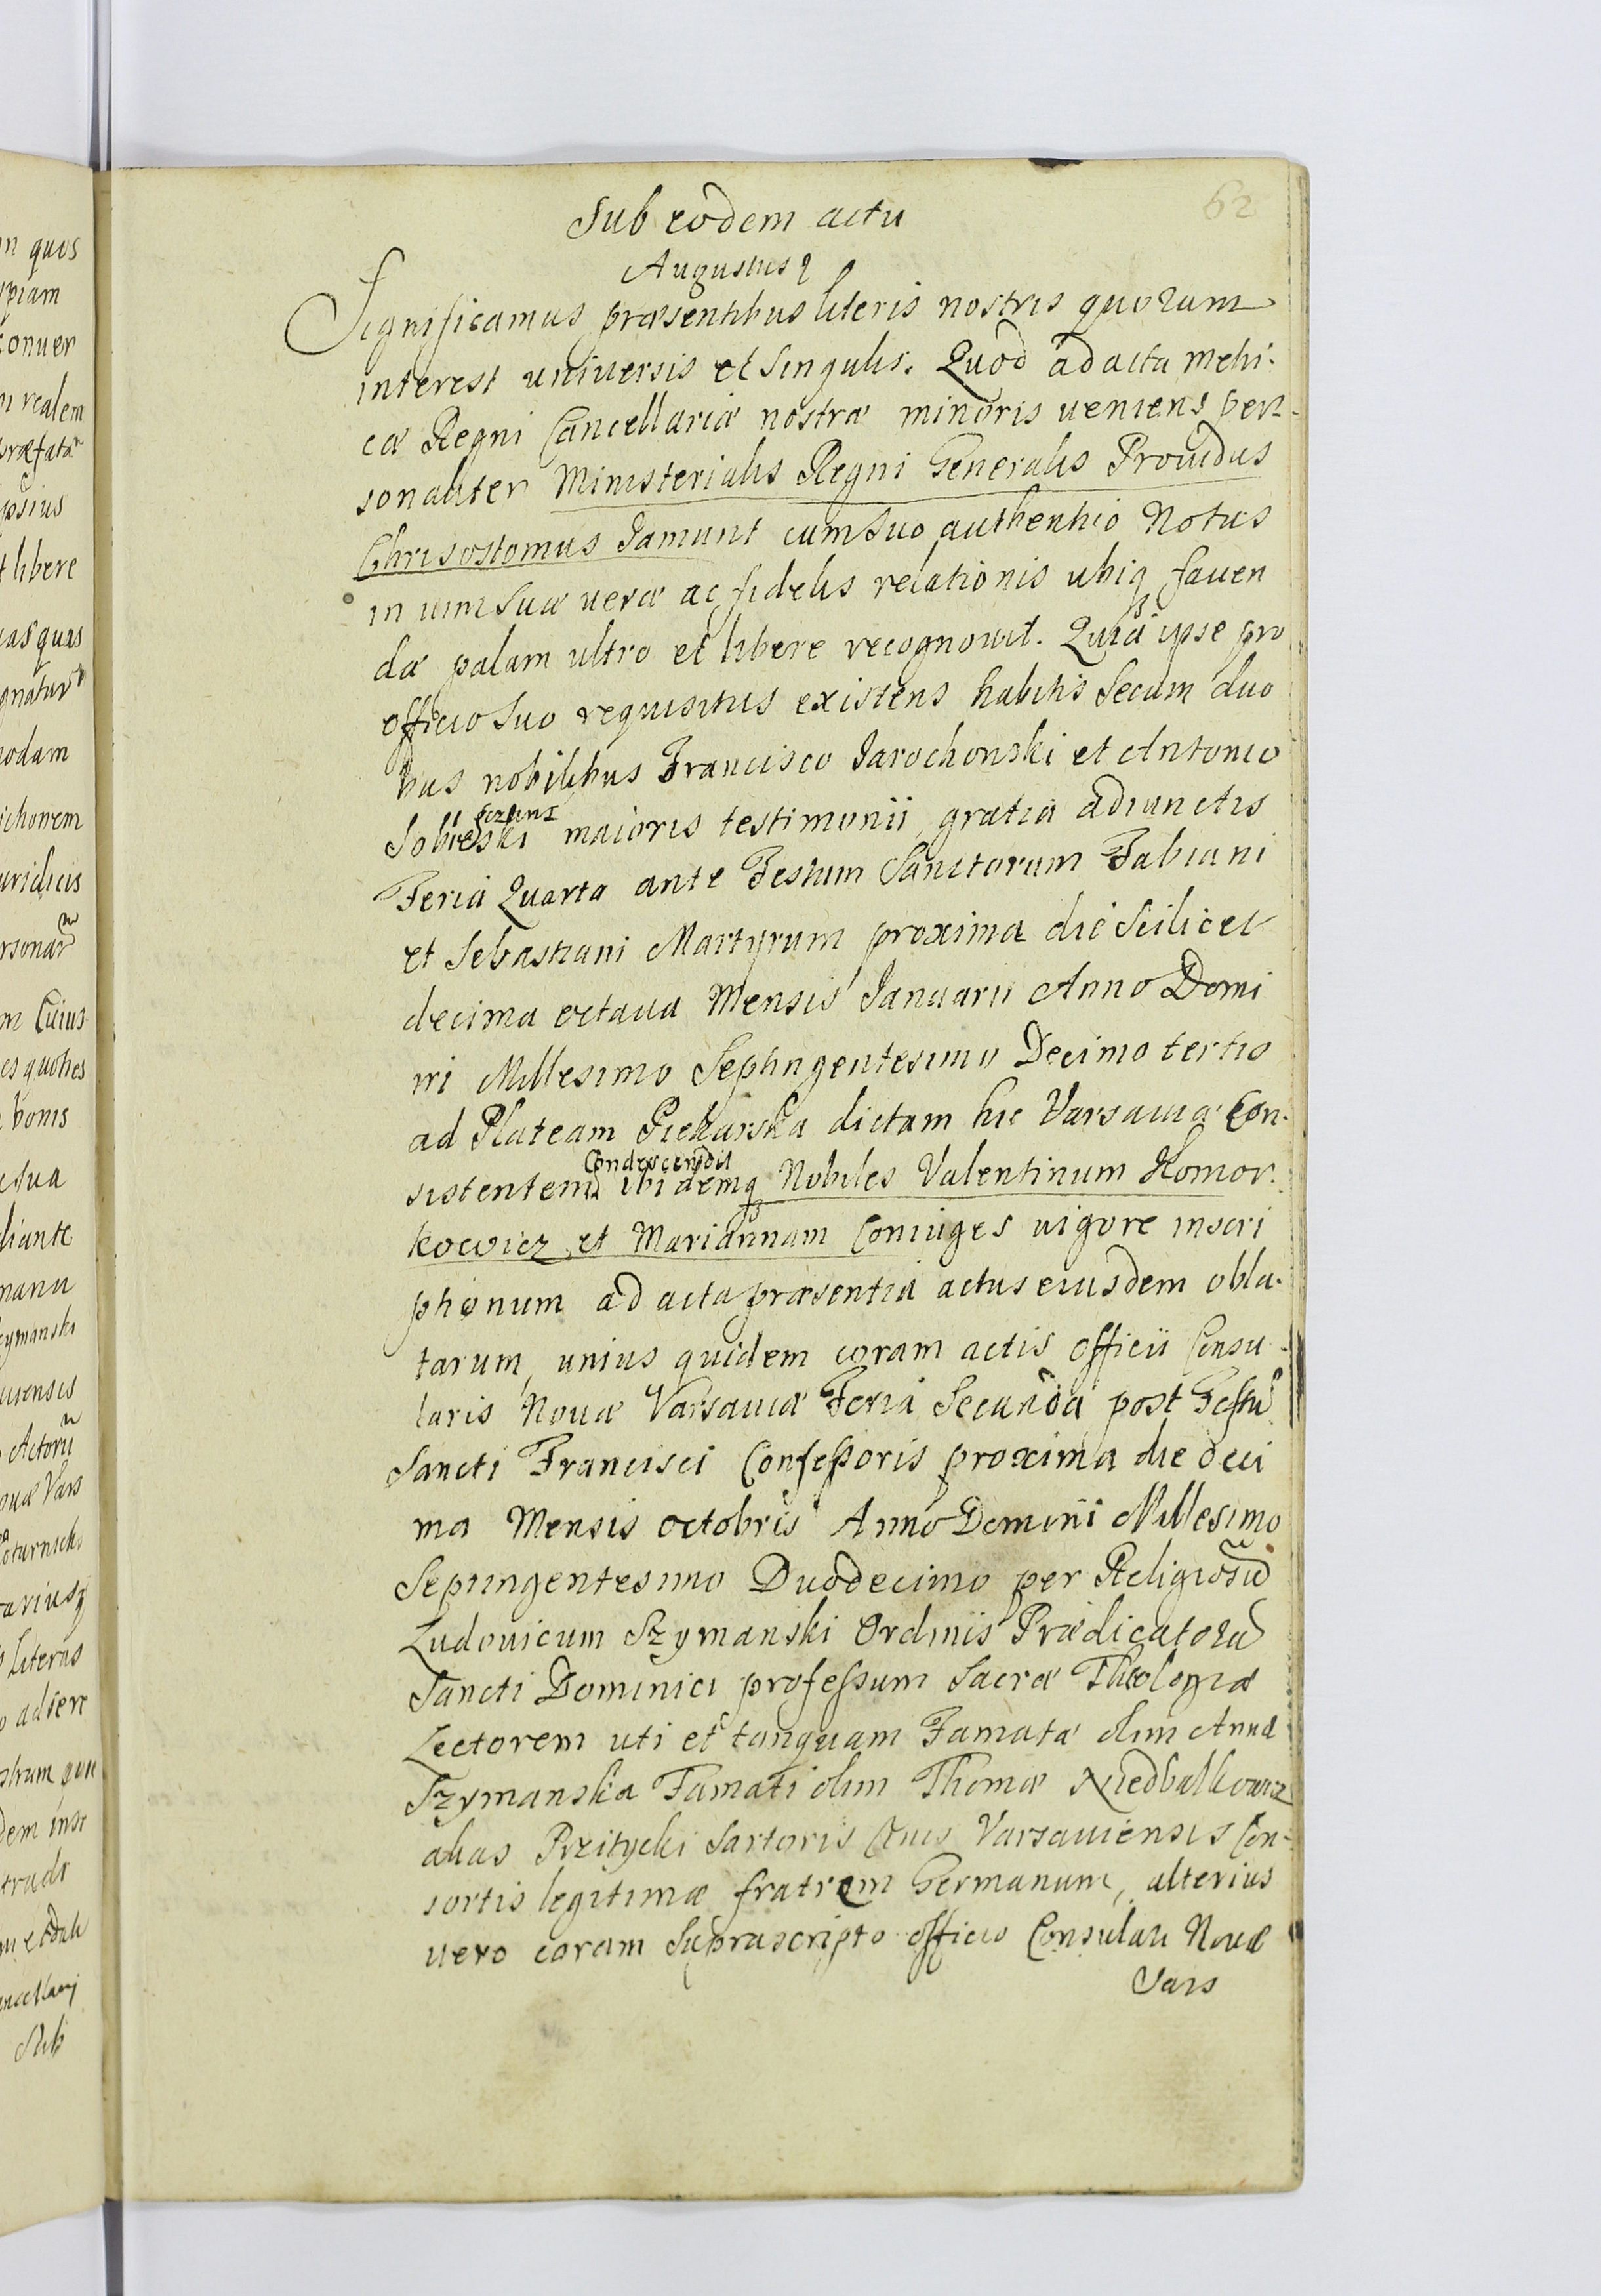 62
Sub eodem actu
Augustus 2
Significamus præsentibus literis nostris quorum
interest universis et singulis. Quod ad acta metri-
cæ Regni Cancellariæ nostræ minoris veniens per-
sonaliter Ministerialis Regni Generalis Providus
Chrisostomus Jamunt cum suo authentico Notus
in vim suæ veræ ac fidelis relationis ubiq faven
dæ palam ultro et libere recognovit. Quia ipse pro
officio suo requisitus existens habitis secum duo
bus nobilibus Francisco Jarochonski et Antonio
Sobieski maioris testimonii gratia adiunctis
Feria Quarta ante Festum Sanctorum Fabiani
et Sebastiani Martyrum proxima die scilicet
decima octava Mensis Januarii Anno Domi
ni Millesimo Septingentesimo Decimo tertio
ad Plateam Piekarska dictam hic Varsaviæ Con-
condescendit
sistentem ibidemq Nobiles Valentinum Komor-
kowicz et Mariannam Coniuges vigore inscri
ptionum ad acta præsentia actus eiusdem obla-
tarum, unius quidem coram actis officii Consu-
laris Novæ Varsaviæ Feria Secunda post Festū
Sancti Francisci Confessoris proxima die deci
ma Mensis octobris Anno Domini Millesimo
Septingentesimo Duodecimo per Religiosū
Ludovicum Szymanski Ordinis Prædicatorū
Sancti Dominici professum Sacræ Theologiæ
Lectorem uti et tanquam Famatæ olim Annæ
Szymanska Famati olim Thomæ Niedbalkowicz
alias Przitycki Sartoris Civis Varsaviensis Con-
sortis legitimæ fratrem Germanum, alterius
vero coram suprascripto officio Consulari Novæ
Vars